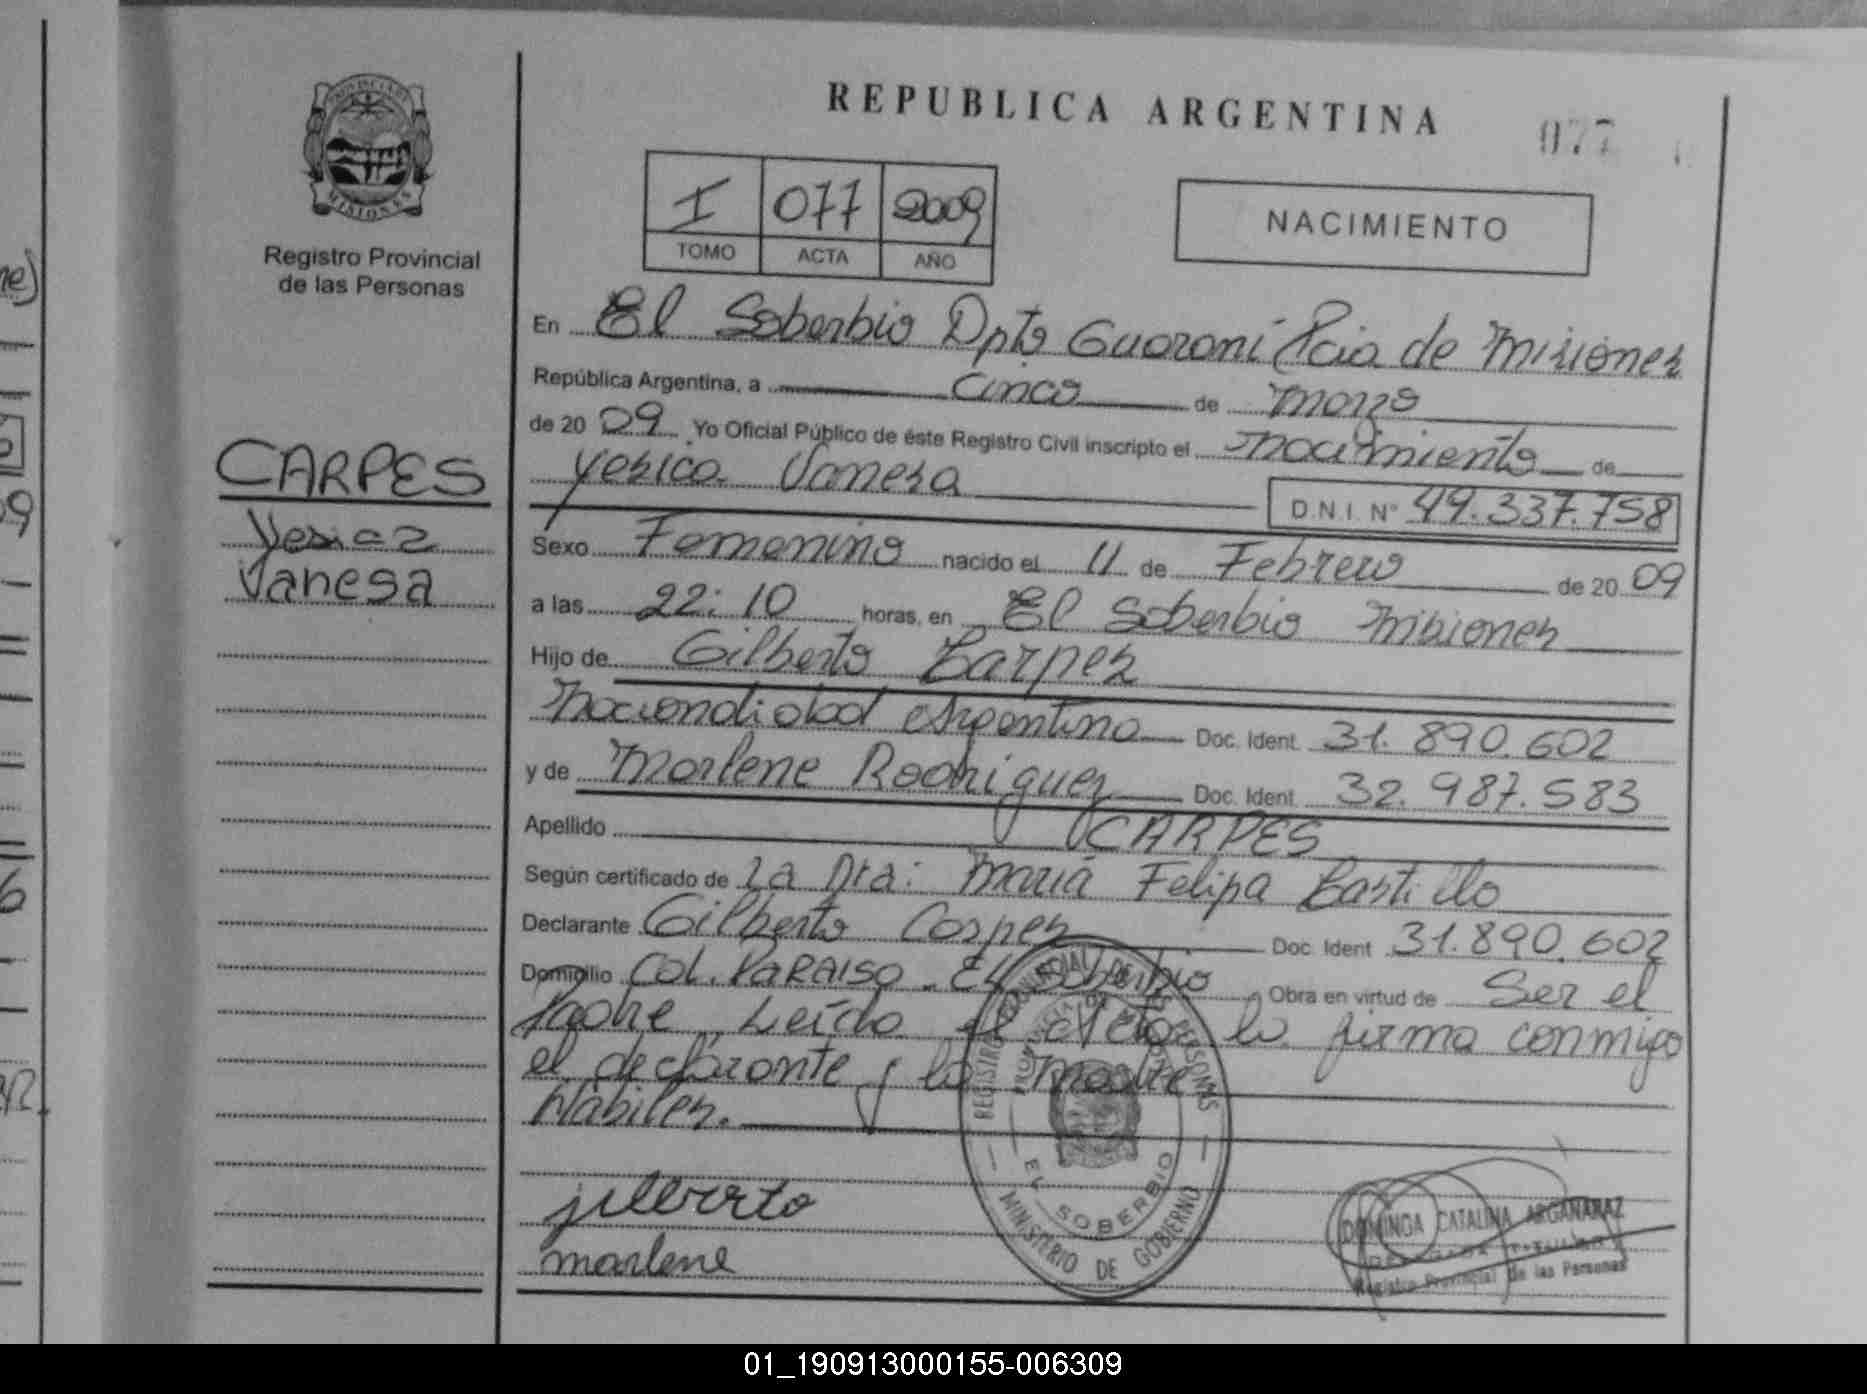 REPUBLICA ARGENTINA
077
PROVINCIA DE
MISIONES
Registro Provincial
de las Personas
I 077 2009
TOMO ACTA AÑO
NACIMIENTO
CARPES
Yesica
Vanesa
En El Soberbio Dpto Guaraní Pcia de Misiones
República Argentina, a cinco de marzo
de 2009 Yo Oficial Público de éste Registro Civil inscripto el nacimiento de
Yesica Vanesa D.N.I. N° 49.337.758
Sexo Femenino nacido el 11 de Febrero de 2009
a las 22:10 horas, en El Soberbio Misiones
Hijo de Gilberto Carpes
Nacionalidad Argentina Doc. Ident. 31.890.602
y de Marlene Rodriguez Doc. Ident. 32.987.583
Apellido CARPES
Según certificado de la Dra: Maria Felipa Castillo
Declarante Gilberto Carpes Doc. Ident 31.890.602
Domicilio Col. PARAISO - El Soberbio Obra en virtud de Ser el
Padre, Leída el Acta la firma conmigo
el declarante y la madre
Habiles.
REGISTRO PROVINCIAL DE LAS PERSONAS
PROVINCIA DE MISIONES
EL SOBERBIO
MINISTERIO DE GOBIERNO
jilberto
marlene
DOMINGA CATALINA ARGAÑARAZ
Registro Provincial de las Personas
01_190913000155-006309